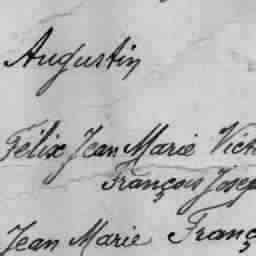 Augustin
Félix Jean Marie Vict
François Josep
Jean Marie Franç